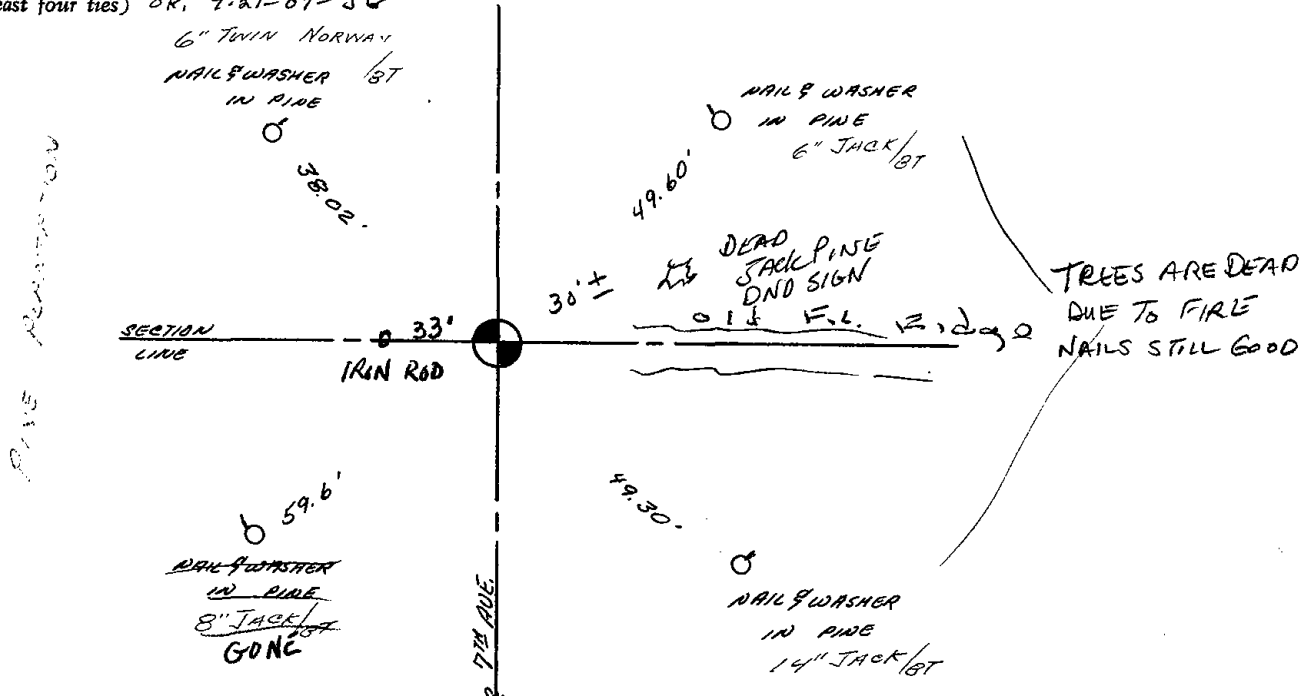 east four ties) OK, 9-21-89-JG
6" TWIN NORWAY
NAIL & WASHER /BT
IN PINE
38.02'
NAIL & WASHER
IN PINE
6" JACK/BT
49.60'
DEAD
JACK PINE
DND SIGN
30'±
TREES ARE DEAD
DUE TO FIRE
NAILS STILL GOOD
SECTION
LINE
33'
IRON ROD
PINE
59.6'
NAIL & WASHER
IN PINE
8" JACK/BT
GONE
49.30'
NAIL & WASHER
IN PINE
14" JACK/BT
7TH AVE.